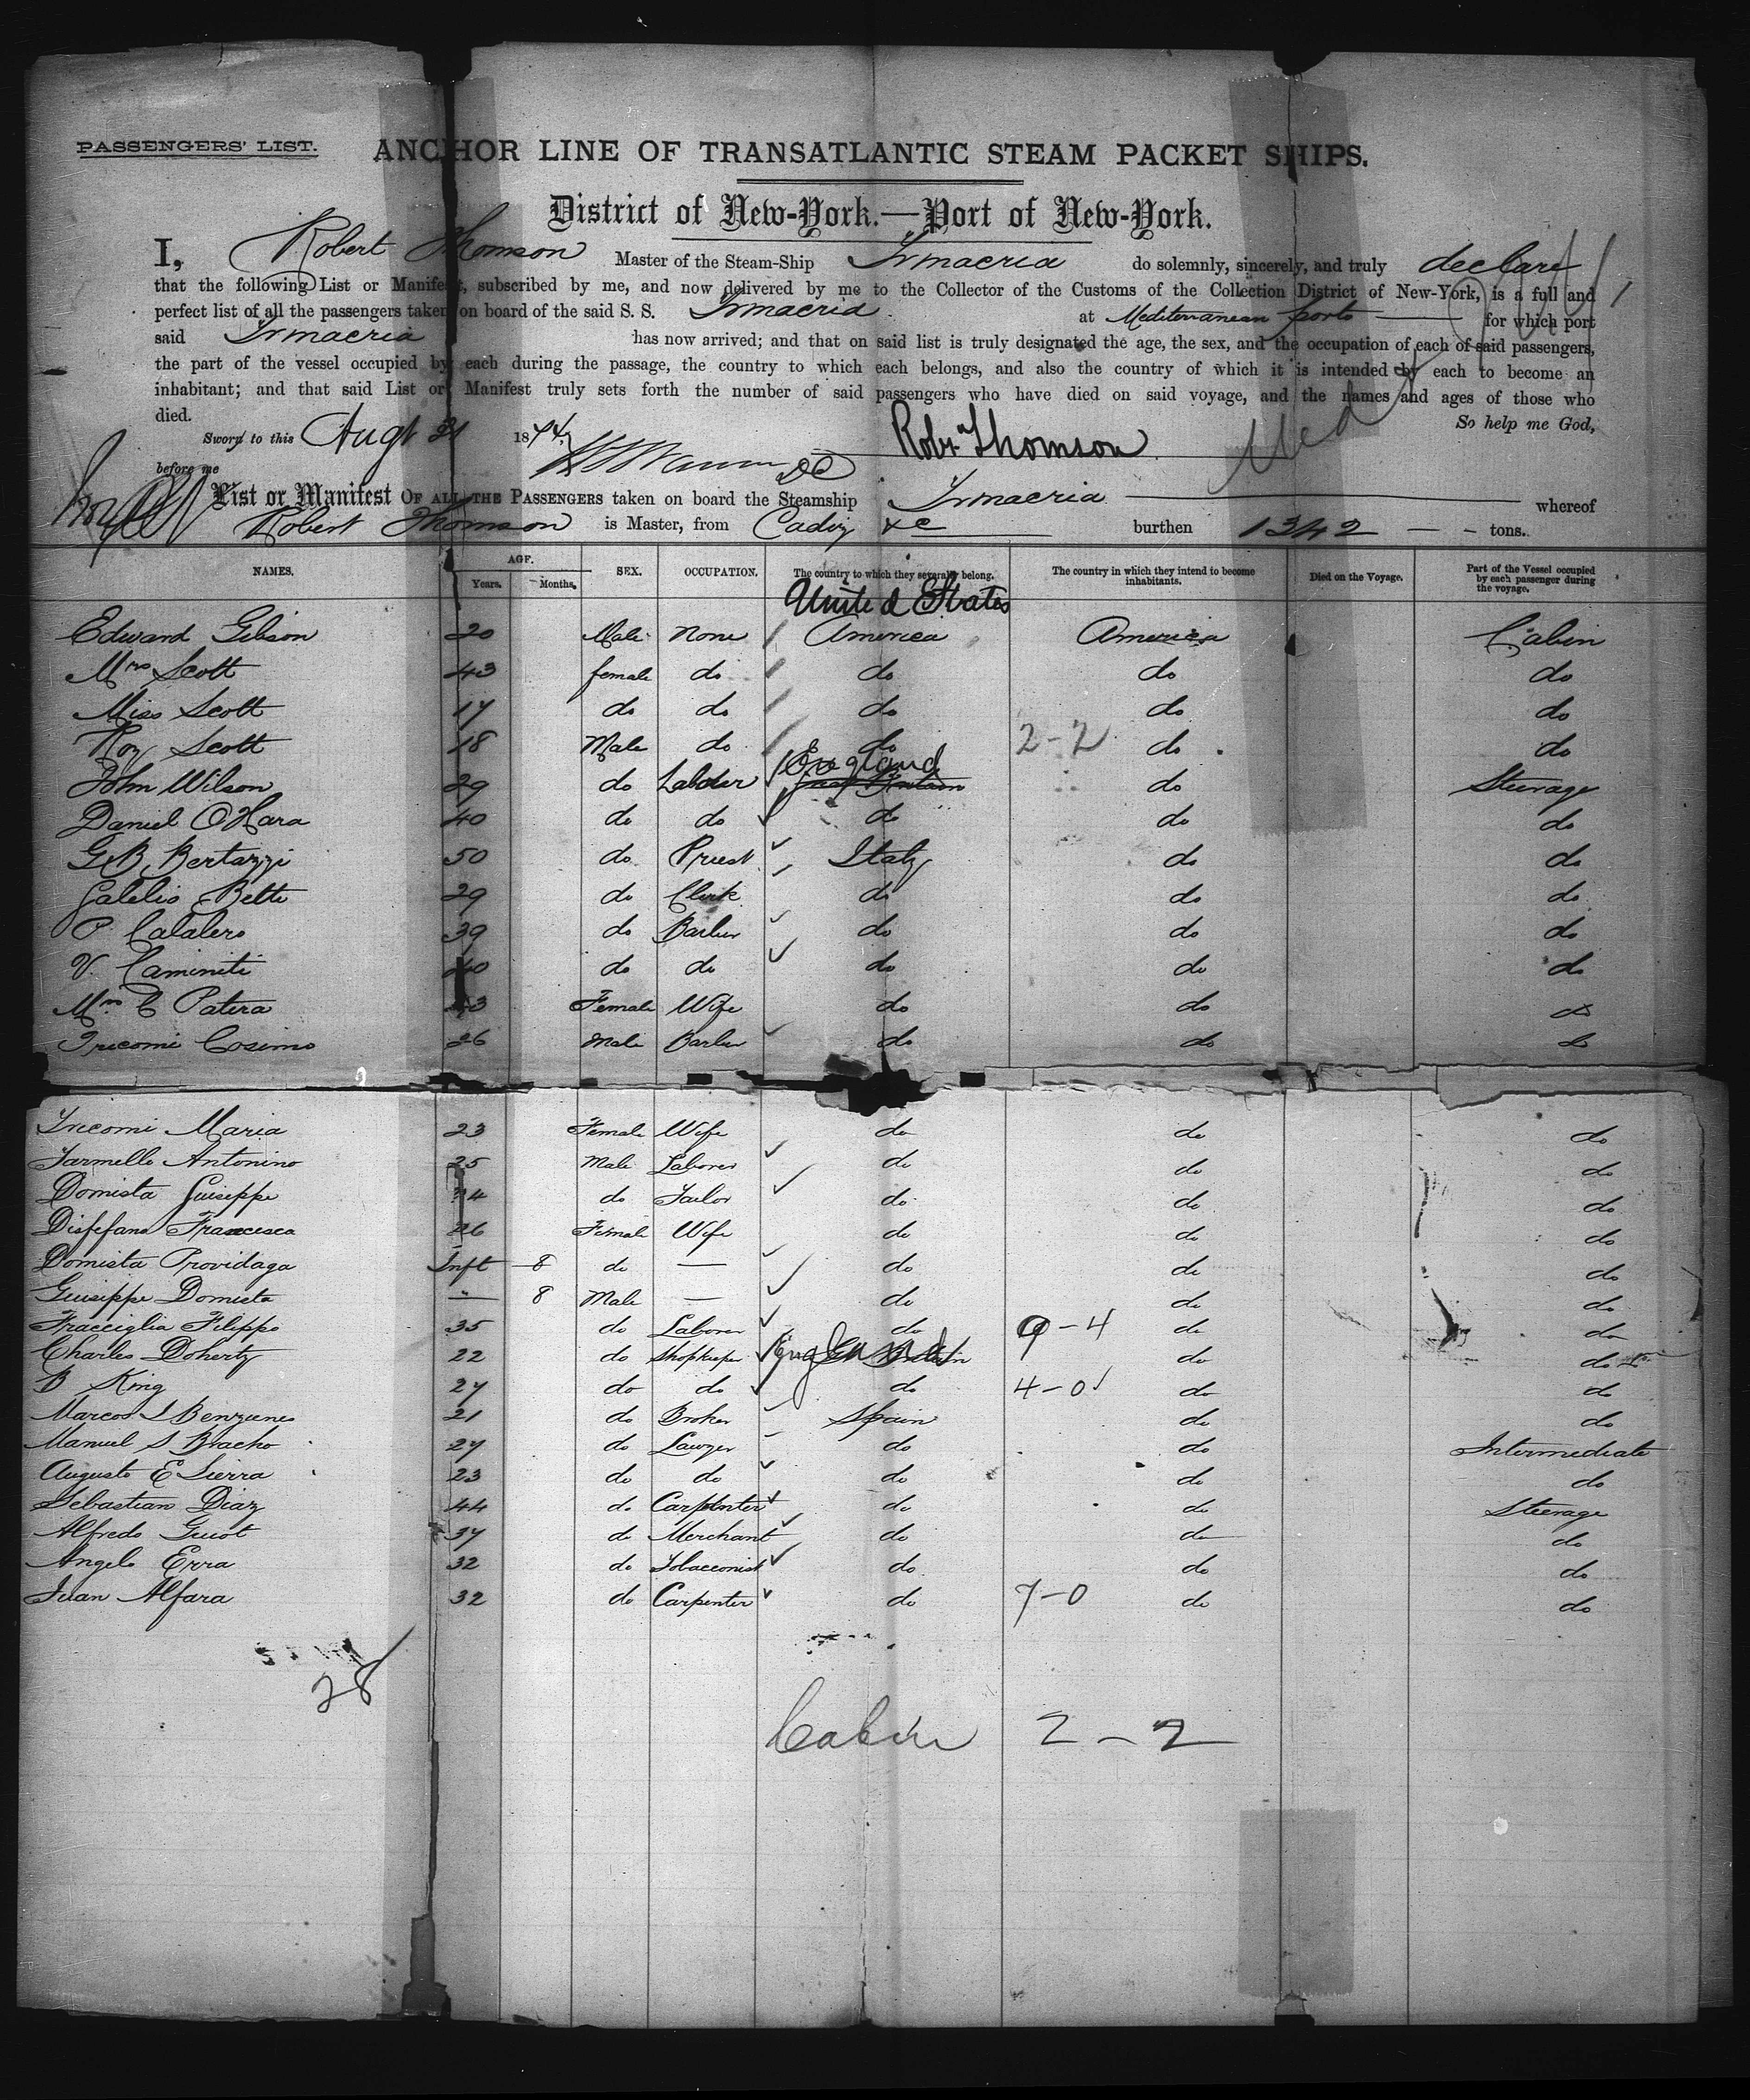 PASSENGERS' LIST.
ANCHOR LINE OF TRANSATLANTIC STEAM PACKET SHIPS.
District of New-York.—Port of New-York.
I, Robert Thomson Master of the Steam-Ship Ismaeria do solemnly, sincerely, and truly declare
that the following List or Manifest, subscribed by me, and now delivered by me to the Collector of the Customs of the Collection District of New-York, is a full and
perfect list of all the passengers taken on board of the said S. S. Ismaeria at Mediterranean ports for which port
said Ismaeria has now arrived; and that on said list is truly designated the age, the sex, and the occupation of each of said passengers,
the part of the vessel occupied by each during the passage, the country to which each belongs, and also the country of which it is intended by each to become an
inhabitant; and that said List or Manifest truly sets forth the number of said passengers who have died on said voyage, and the names and ages of those who
died.
So help me God,
Sworn to this Augt 31 1874
Robt Thomson
before me
List or Manifest OF ALL THE PASSENGERS taken on board the Steamship Ismaeria whereof
Robert Thomson is Master, from Cadiz &c burthen 1342 tons.
NAMES. AGE. Years. Months. SEX. OCCUPATION. The country to which they severally belong. The country in which they intend to become inhabitants. Died on the Voyage. Part of the Vessel occupied by each passenger during the voyage.
United States
Edward Gibson 20 Male None America America Cabin
Mrs Scott 43 female do do do do
Miss Scott 17 do do do do do
Roy Scott 18 Male do do 2-2 do do
England
John Wilson 29 do Labour Great Britain do Steerage
Daniel O'Hara 40 do do do do do
G B Bertazzi 50 do Priest Italy do do
Galelio Betti 29 do Clerk do do do
P. Calalero 39 do Barber do do do
V. Caminiti 40 do do do do do
Mrs C Patera 43 Female Wife do do do
Tricomi Cosimo 26 Male Barber do do do
Tricomi Maria 23 Female Wife do do do
Jarmello Antonino 25 Male Laborer do do do
Domista Guiseppe 34 do Tailor do do do
Disfefano Francesca 26 Female Wife do do do
Domista Providaga Inft 8 do — do do do
Guiseppe Domista 8 Male — do do do
Fracciglia Filippo 35 do Laborer do 9-4 do do
Charles Doherty 22 do Shopkeeper England Gt Britain do do
B King 27 do do do 4-0 do do
Marcos S Benzunes 21 do Broker Spain do do
Manuel S Bracho 27 do Lawyer do do Intermediate
Augusto E Sierra 23 do do do do do
Sebastian Diaz 44 do Carpenter do do Steerage
Alfredo Guiot 37 do Merchant do do do
Angelo Erra 32 do Tobacconist do do do
Juan Alfara 32 do Carpenter do 7-0 do do
28
Cabin 2-2